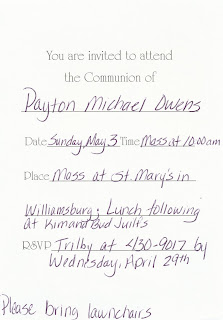 You are invited to attend
the Communion of
Payton Michael Owens
Date Sunday May 3 Time Mass at 10:00am
Place Mass at St Mary's in
Williamsburg; Lunch following
at Kim and Bud Juilfs
RSVP Trilby at 430-9017 by
Wednesday, April 29th
Please bring lawnchairs